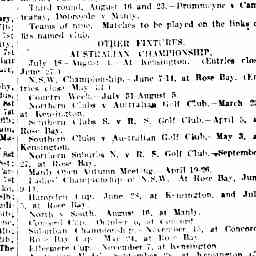 Third round, August 16 and 23.—Drummoyne v Cam
Dobroyde v Manly.
Teams of nine. Matches to be played on the links of
first named club.
OTHER FIXTURES.
AUSTRALIAN CHAMPIONSHIP.
July 18—August 1. At Kensington. (Entries close
June 27.)
N.S.W. Championship.—June 7-14, at Rose Bay. (En
tries close May 23.)
Country Week.—July 31-August 5.
Northern Clubs v Australian Golf Club.—March 22
at Kensington.
Northern Clubs S. v R. S. Golf Club.—April 5, at
Rose Bay.
Southern Clubs v Australian Golf Club.—May 3, at
Kensington.
Northern Suburbs N. v R. S. Golf Club.—September
27, at Rose Bay.
Manly Open Autumn Meeting.—April 19-26.
Ladies' Championship of N.S.W. At Rose Bay, June
9-13.
Hampden Cup.—June 28, at Kensington, and July
5, at Rose Bay.
North v South.—August 16, at Manly.
Concord Cup.—October 6, at Concord.
Suburban Championship.—November 15, at Concord
Rose Bay Cup.—May 24, at Rose Bay.
Ellesmere Cup.—November 17, at Kensington